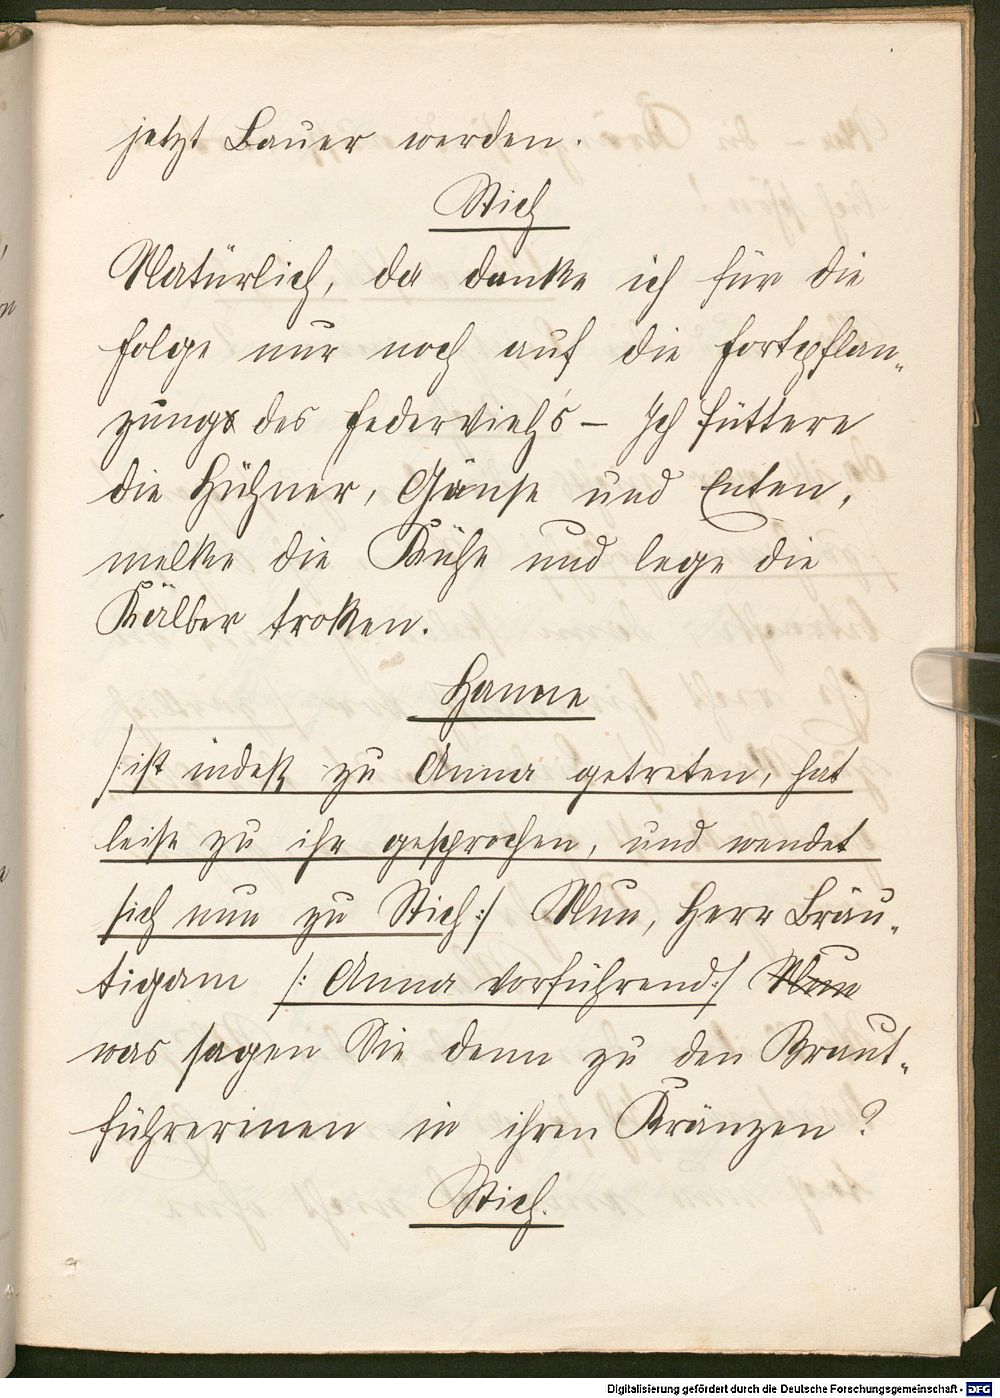 jetzt Bauer werden.
Stich
Natürlich, da danke ich für die
Folge nur noch auf die Fortpflan-
zung des Federvieh's – Ich füttere
die Hühner, Gänse und Enten,
melke die Kühe und lege die
Kälber troken.
Hanne
/:ist indeß zu Anna getreten, hat
leise zu ihr gesprochen, und wendet
sich nun zu Stich:/ Nun, Herr Bräu-
tigam /: Anna vorführend:/ Nun
was sagen Sie denn zu den Braut-
führerinen in ihren Kränzen?
Stich.
Digitalisierung gefördert durch die Deutsche Forschungsgemeinschaft - DFG